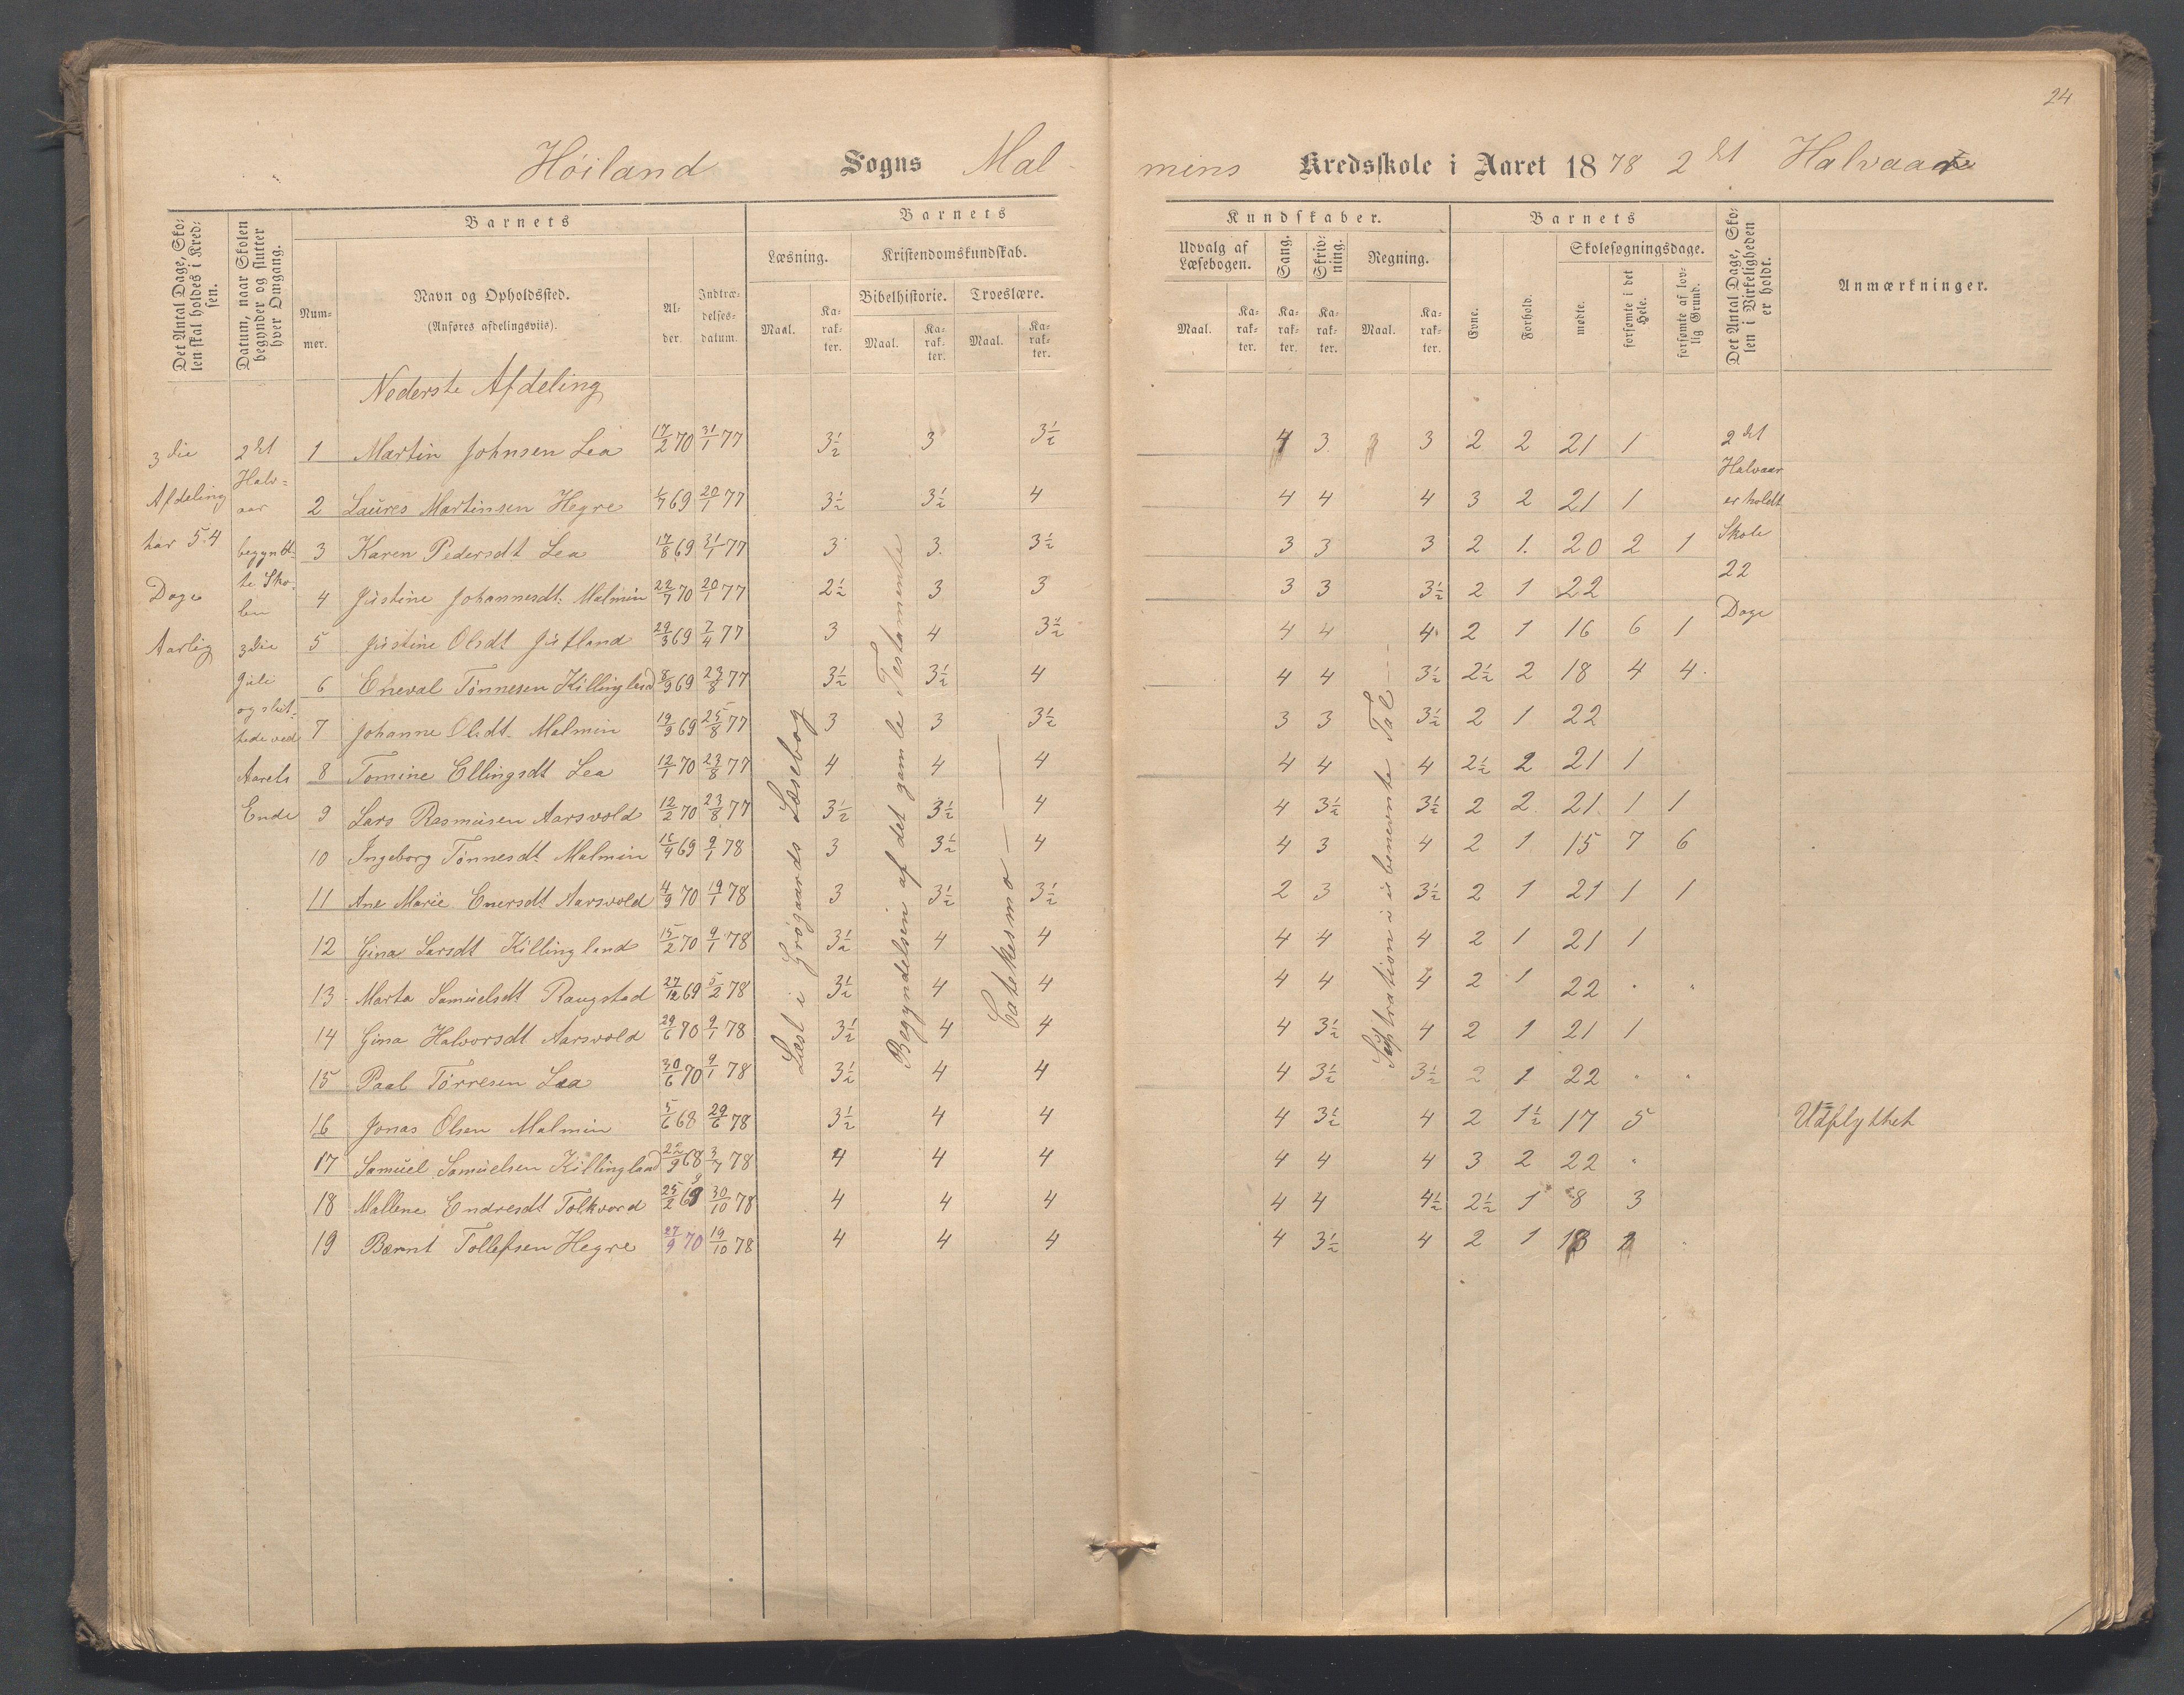 24
Höiland Sogns Mal-
mins Kredsskole i Aaret 1878 2det Halvaar
Det Antal Dage, Skolen skal holdes i Kredsen.
Datum, naar Skolen begynder og slutter hver Omgang.
Barnets
Nummer.
Navn og Opholdssted.
(Anføres afdelingsviis).
Alder.
Indtrædelsesdatum.
Barnets
Læsning.
Kristendomskundskab.
Bibelhistorie.
Troeslære.
Maal.
Karakter.
Maal.
Karakter.
Maal.
Karakter.
Kundskaber.
Udvalg af Læsebogen.
Sang.
Skrivning.
Regning.
Maal.
Karakter.
Karakter.
Karakter.
Maal.
Karakter.
Barnets
Evne.
Forhold.
Skolesøgningsdage.
mødte.
forsømte i det Hele.
forsømte af lovlig Grund.
Det Antal Dage, Skolen i Virkeligheden er holdt.
Anmærkninger.
Nederste Afdeling
3die Afdeling har 54 Dage Aarlig
2det Halvaar begyndte Skolen 3die Juli og sluttede ved Aarets Ende
Læst i Grögaards Læsebog
Begyndelsen af det gamle Testamente
Catekesmo
Subtration i ubenevnte Tal
2det Halvaar er holdt Skole 22 Dage
1 Martin Johnsen Lea 17/2 70 31/1 77 3½ 3 3½ 4 3 3 2 2 21 1
2 Laures Martinsen Hegre 1/7 69 20/1 77 3½ 3½ 4 4 4 4 3 2 21 1
3 Karen Pedersdt Lea 17/8 69 31/1 77 3 3 3½ 3 3 3 2 1 20 2 1
4 Justine Johannesdt. Malmin 22/7 70 20/1 77 2½ 3 3 3 3 3½ 2 1 22
5 Justine Olsdt Jutland 29/3 69 7/4 77 3 4 3½ 4 4 4 2 1 16 6 1
6 Eneval Tönnesen Killingland 8/9 69 23/8 77 3½ 3½ 4 4 4 3½ 2½ 2 18 4 4
7 Johanne Olsdt. Malmin 19/9 69 25/8 77 3 3 3½ 3 3 3½ 2 1 22
8 Tomine Ellingsdt Lea 12/1 70 23/8 77 4 4 4 4 4 4 2½ 2 21 1
9 Lars Rasmusen Aarsvold 12/2 70 23/8 77 3½ 3½ 4 4 3½ 3½ 2 2 21 1 1
10 Ingeborg Tönnesdt. Malmin 16/4 69 9/1 78 3 3½ 4 4 3 4 2 1 15 7 6
11 Ane Marie Enersdt. Aarsvold 4/9 70 19/1 78 3 3½ 3½ 2 3 3½ 2 1 21 1 1
12 Gina Larsdt Killingland 15/2 70 9/1 78 3½ 4 4 4 4 4 2 1 21 1
13 Marta Samuelsdt Raugstad 27/12 69 5/2 78 3½ 4 4 4 4 4 2 1 22 " "
14 Gina Halvorsdt Aarsvold 29/6 70 9/1 78 3½ 4 4 4 3½ 4 2 1 21 1
15 Paal Törresen Lea 30/6 70 9/1 78 3½ 4 4 4 3½ 3½ 2 1 22 " "
16 Jonas Olsen Malmin 5/6 68 29/6 78 3½ 4 4 4 3½ 4 2 1½ 17 5 Udflyttet
17 Samuel Samuelsen Killingland 22/9 68 3/7 78 4 4 4 4 4 4 3 2 22 "
18 Mallene Endresdt Tolkvord 25/2 69 30/10 78 4 4 4 4 4 4½ 2½ 1 8 3
19 Bernt Tollefsen Hegre 27/9 70 19/10 78 4 4 4 4 3½ 4 2 1 18